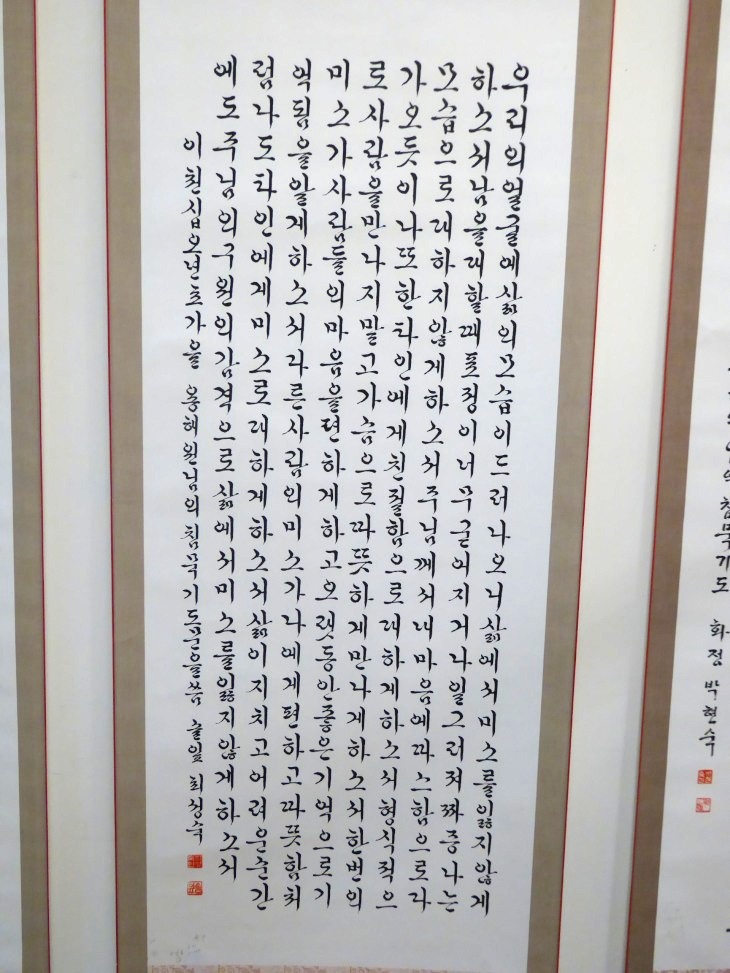 우리의얼굴에삶의모습이드러나오니삶에서미소를잃지않게
하소서남을대할때표정이너무굳어지거나일그러져짜증나는
모습으로대하지않게하소서주님께서내마음에따스함으로다
가오듯이나또한타인에게친절함으로대하게하소서형식적으
로사람을만나지말고가슴으로따뜻하게만나게하소서한번의
미소가사람들의마음을편하게하고오랫동안좋은기억으로기
억됨을알게하소서다른사람의미소가나에게편하고따뜻함처
럼나도타인에게미소로대하게하소서삶이지치고어려운순간
에도주님의구원의감격으로삶에서미소를잃지않게하소서
이천십오년초가을 용해원님의침묵기도문을씀 늘잎 최성숙
침묵기도 화정 박현숙